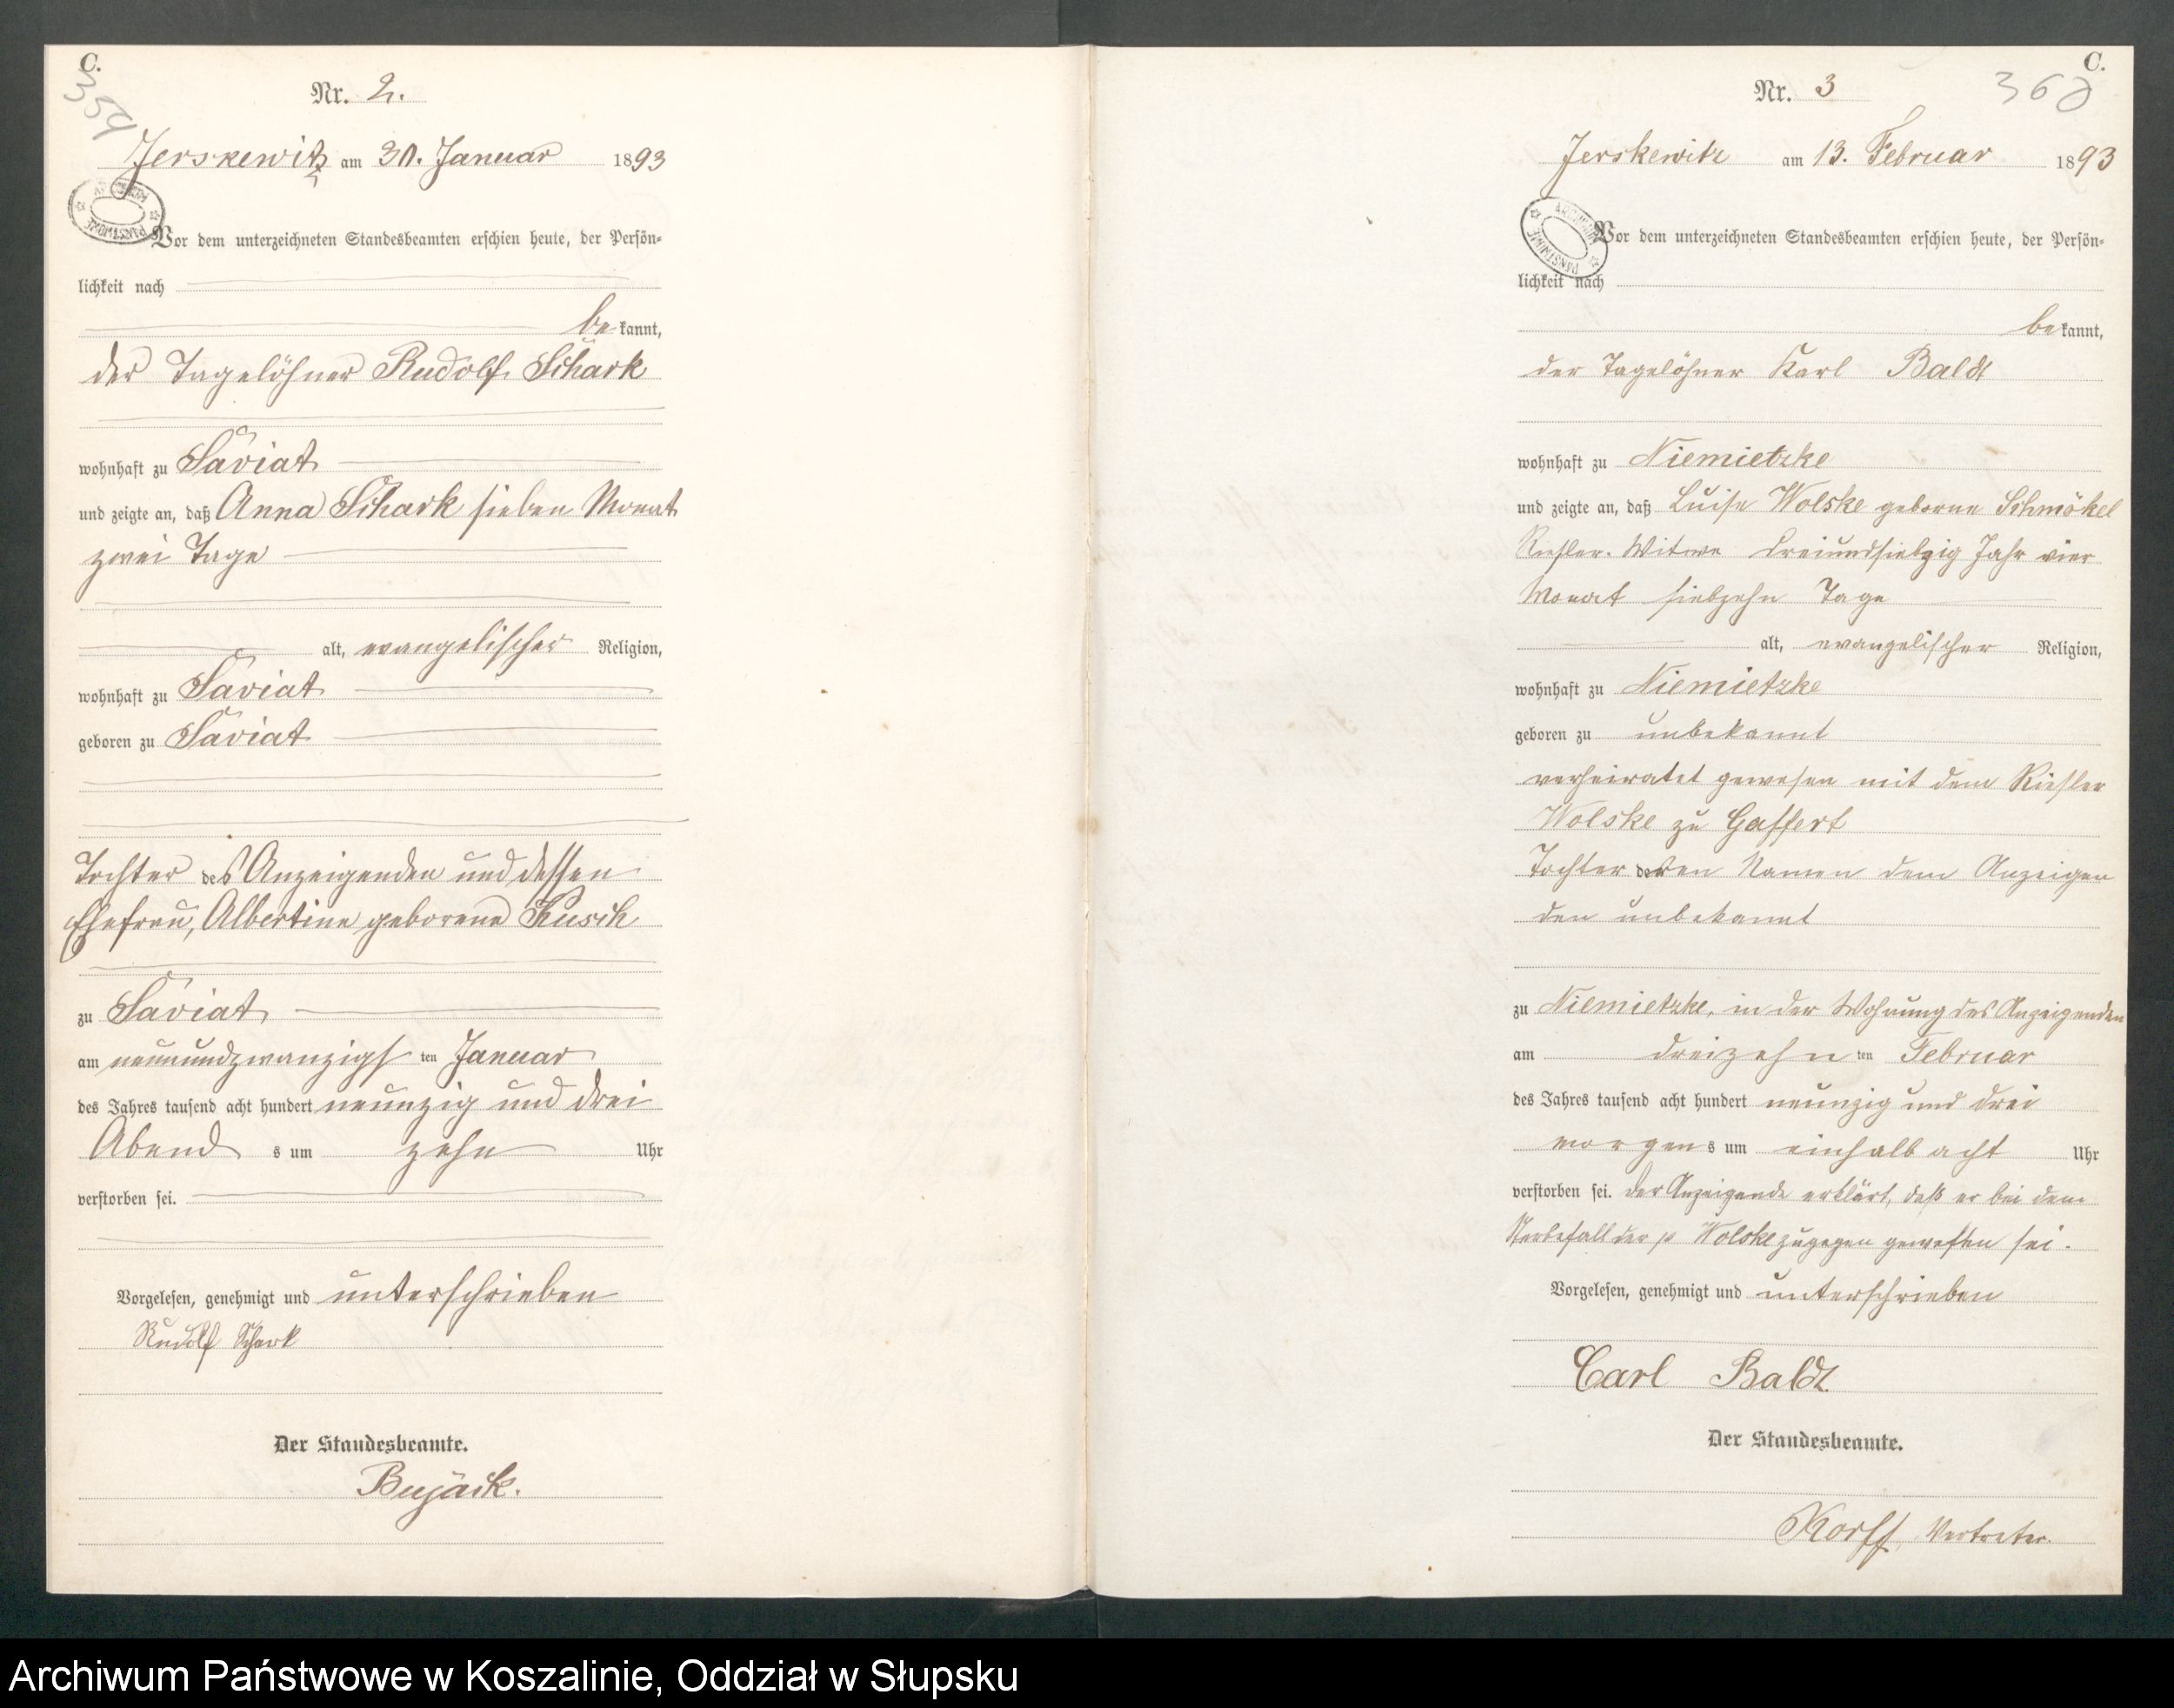 C.
359
Nr. 2.
Jerskewitz am 30. Januar 1893
Vor dem unterzeichneten Standesbeamten erschien heute, der Persön-
lichkeit nach
be kannt,
der Tagelöhner Rudolf Schark
wohnhaft zu Saviat
und zeigte an, daß Anna Schark sieben Monat
zwei Tage
alt, evangelischer Religion,
wohnhaft zu Saviat
geboren zu Saviat
Tochter des Anzeigenden und dessen
Ehefrau, Albertine geborene Kusch
zu Saviat
am neunundzwanzigs ten Januar
des Jahres tausend acht hundert neunzig und drei
Abend s um zehn Uhr
verstorben sei.
Vorgelesen, genehmigt und unterschrieben
Rudolf Schark
Der Standesbeamte.
Bujäck.
C.
360
Nr. 3
Jerskewitz am 13. Februar 1893
ARCHIWUM PAŃSTWOWE
Vor dem unterzeichneten Standesbeamten erschien heute, der Persön-
lichkeit nach
be kannt,
der Tagelöhner Karl Baldt
wohnhaft zu Niemietzke
und zeigte an, daß Luise Wolske geborne Schmökel
Witwe dreiundsiebzig Jahr vier
Monat siebzehn Tage
alt, evangelischer Religion,
wohnhaft zu Niemietzke
geboren zu unbekannt
verheiratet gewesen mit dem
Wolske zu Gaffert
Tochter deren Namen dem Anzeigen
den unbekannt
zu Niemietzke, in der Wohnung des Anzeigenden
am dreizehn ten Februar
des Jahres tausend acht hundert neunzig und drei
morgen s um einhalb acht Uhr
verstorben sei. Der Anzeigende erklärt, daß er bei dem
Sterbefall der p Wolske zugegen gewesen sei.
Vorgelesen, genehmigt und unterschrieben
Carl Baldt
Der Standesbeamte.
Korff, Vertreter.
Archiwum Państwowe w Koszalinie, Oddział w Słupsku